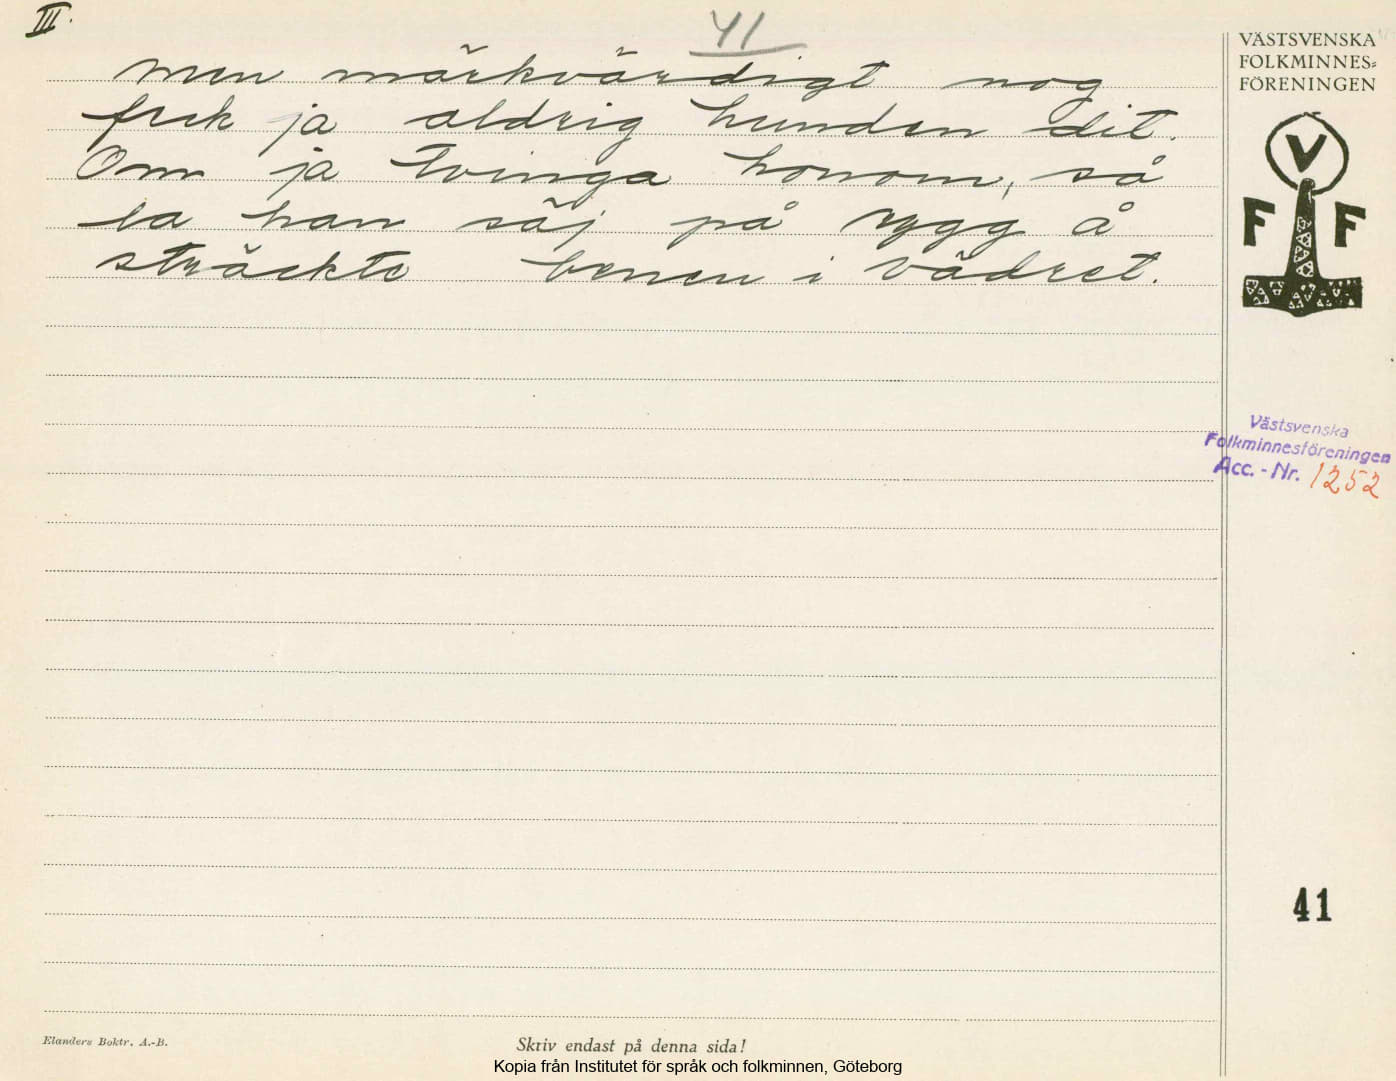 III.
41
men märkvärdigt nog
fick ja aldrig hunden dit.
Om ja tvinga honom, så
la han säj på rygg å
sträckte benen i vädret.
VÄSTSVENSKA
FOLKMINNES=
FÖRENINGEN
V
F F
Västsvenska
Folkminnesföreningen
Acc. - Nr. 1252
41
Elanders Boktr. A.-B.
Skriv endast på denna sida!
Kopia från Institutet för språk och folkminnen, Göteborg